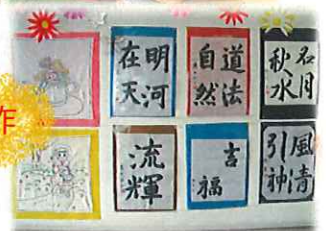 作
明河
在天
道法
自然
名月
秋水
流輝
吉福
風清
引神